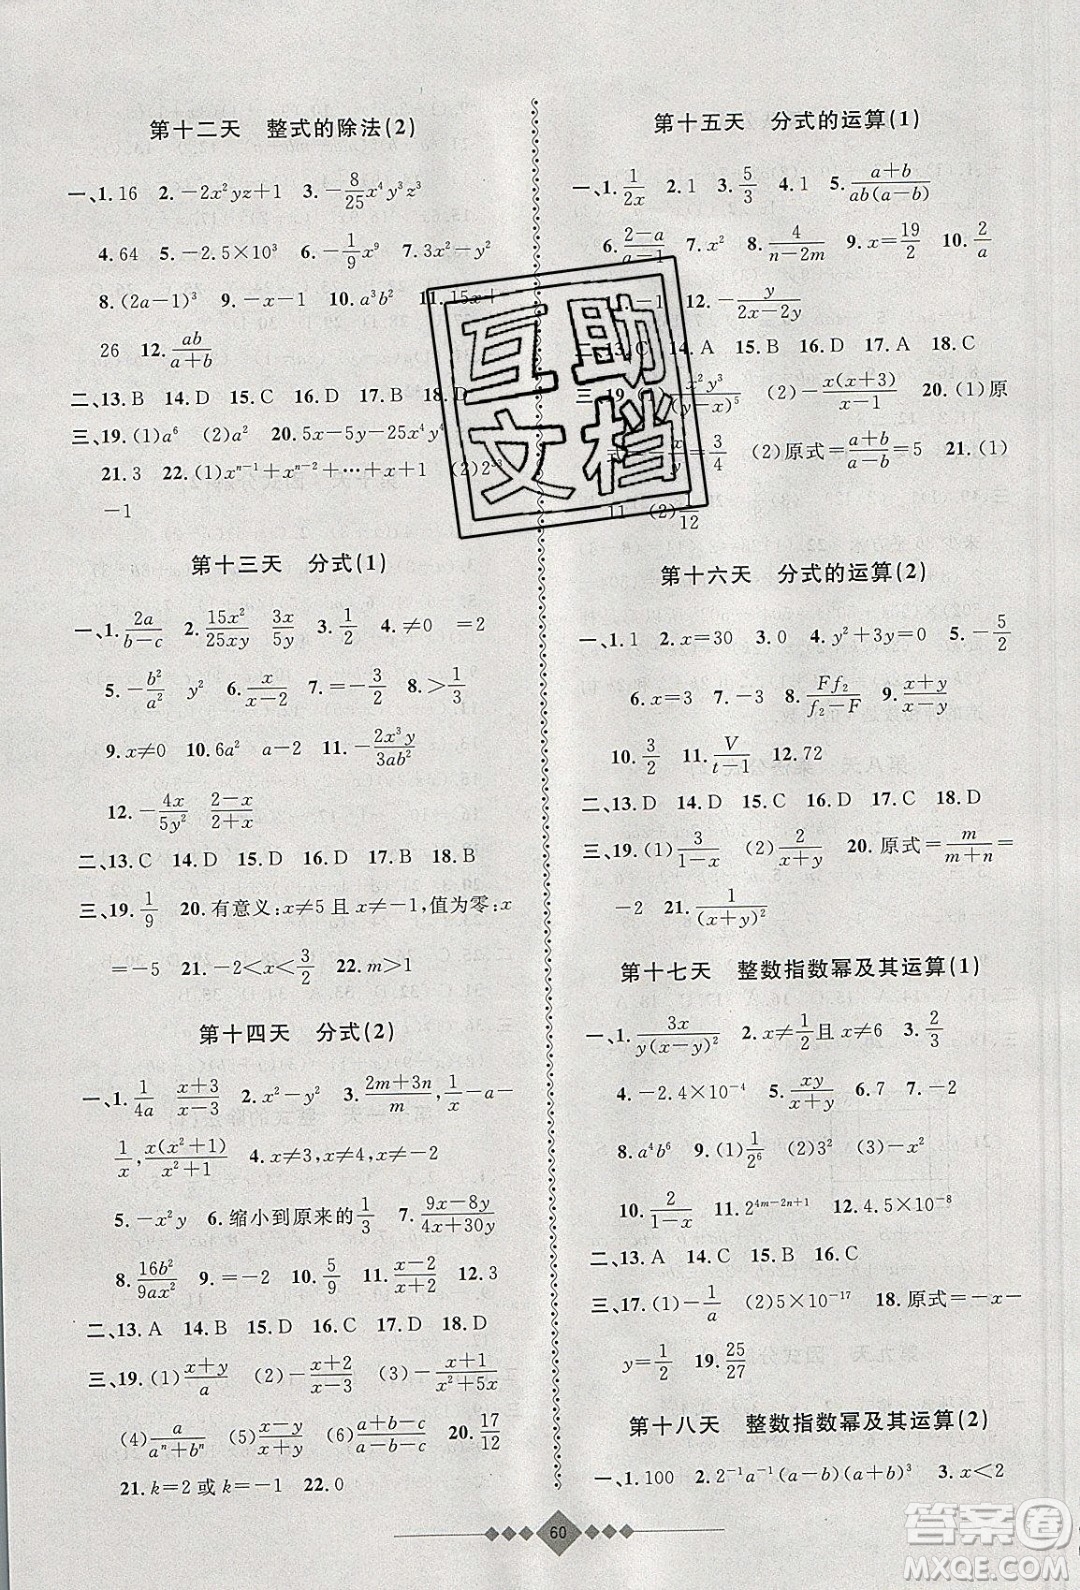 第十二天 整式的除法(2)
一、1.16 2.-2x²yz+1 3.-8/25x⁴y³z³
4.64 5.-2.5×10³ 6.-1/9x⁹ 7.3x²-y²
8.(2a-1)³ 9.-x-1 10.a³b² 11.15x+
26 12.ab/(a+b)
二、13.B 14.D 15.D 16.B 17.B 18.D
三、19.(1)a⁶ (2)a² 20.5x-5y-25x⁴y⁴
21.3 22.(1)xⁿ⁻¹+xⁿ⁻²+…+x+1 (2)2
-1
第十三天 分式(1)
一、1.2a/(b-c) 2.15x²/25xy 3x/5y 3.1/2 4.≠0 =2
5.-b²/a² y² 6.x/(x-2) 7.=-3/2 8.>1/3
9.x≠0 10.6a² a-2 11.-2x³y/3ab²
12.-4x/5y² (2-x)/(2+x)
二、13.C 14.D 15.D 16.B 17.B 18.B
三、19.1/9 20.有意义:x≠5且x≠-1,值为零:x
=-5 21.-2<x<3/2 22.m>1
第十四天 分式(2)
一、1.1/4a (x+3)/(x-3) 2.x²-y² 3.(2m+3n)/m,1/x-a-
1/x,x(x²+1)/(x²+1) 4.x≠3,x≠4,x≠-2
5.-x²y 6.缩小到原来的1/3 7.(9x-8y)/(4x+50y)
8.16b²/9ax² 9.=-2 10.5/9 11.(x-2)/(x+2) 12.3
二、13.A 14.B 15.D 16.D 17.B 18.D
三、19.(1)(x+y)/a (2)(x+2)/(x-3) (3)(x+1)/(x²+2x)
(4)a/(aⁿ+bⁿ) (5)(x-y)/(x+y) (6)(a+b-c)/(a-b+c) 20.17/12
21.k=2或k=1 22.0
第十五天 分式的运算(1)
一、1.1/2x 2.1 3.5/3 4.1 5.(a+b)/ab(a-b)
6.(2-a)/(a-1) 7.x² 8.4/(n-2m) 9.x=19/2 10.2/a
-1 12.-y/(2x-2y)
13.C 14.A 15.D 16.A 17.A 18.C
19. x²y³/(y-x)⁵ (2)-x(x+3)/(x-1) 20.(1)原
x/y=3/4 (2)原式=(a+b)/(a-b)=5 21.(1)
11 (2)1/12
第十六天 分式的运算(2)
一、1.1 2.x=30 3.0 4.y²+3y=0 5.-5/2
6.x=3 7.-3 8.Ff₂/(f₂-F) 9.(x+y)/(x-y)
10.3/2 11.V/(t-1) 12.72
二、13.D 14.D 15.C 16.D 17.C 18.D
三、19.(1)3/(1-x) (2)2/(x+y) 20.原式=m/(m+n)=
-2 21.1/(x+y)²
第十七天 整数指数幂及其运算(1)
一、1.3x/y(x-y)² 2.x≠1/2且x≠6 3.2/3
4.-2.4×10⁻⁴ 5.xy/(x+y) 6.7 7.-2
8.a⁴b⁶ 9.(1)1/2⁶ (2)3² (3)-1/a
10.2/(1-x) 11.2⁴ᵐ⁻²ⁿ⁺¹ 12.4.5×10⁻⁸
二、13.A 14.C 15.D 16.C
三、17.(1)-1/a (2)5×10⁻¹⁷ 18.原式=-x-
y=1/2 19.25/27
第十八天 整数指数幂及其运算(2)
一、1.100 2.2⁻¹a⁻¹(a-b)(a+b)³ 3.x<2
60
互助
文档
答案卷
MXQE.COM